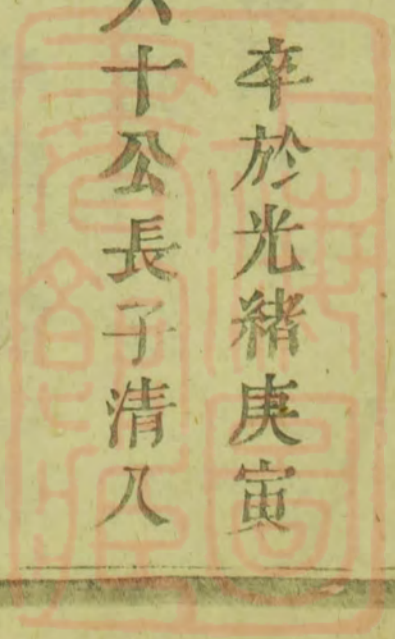 卒於光緒庚寅
十公長子清八